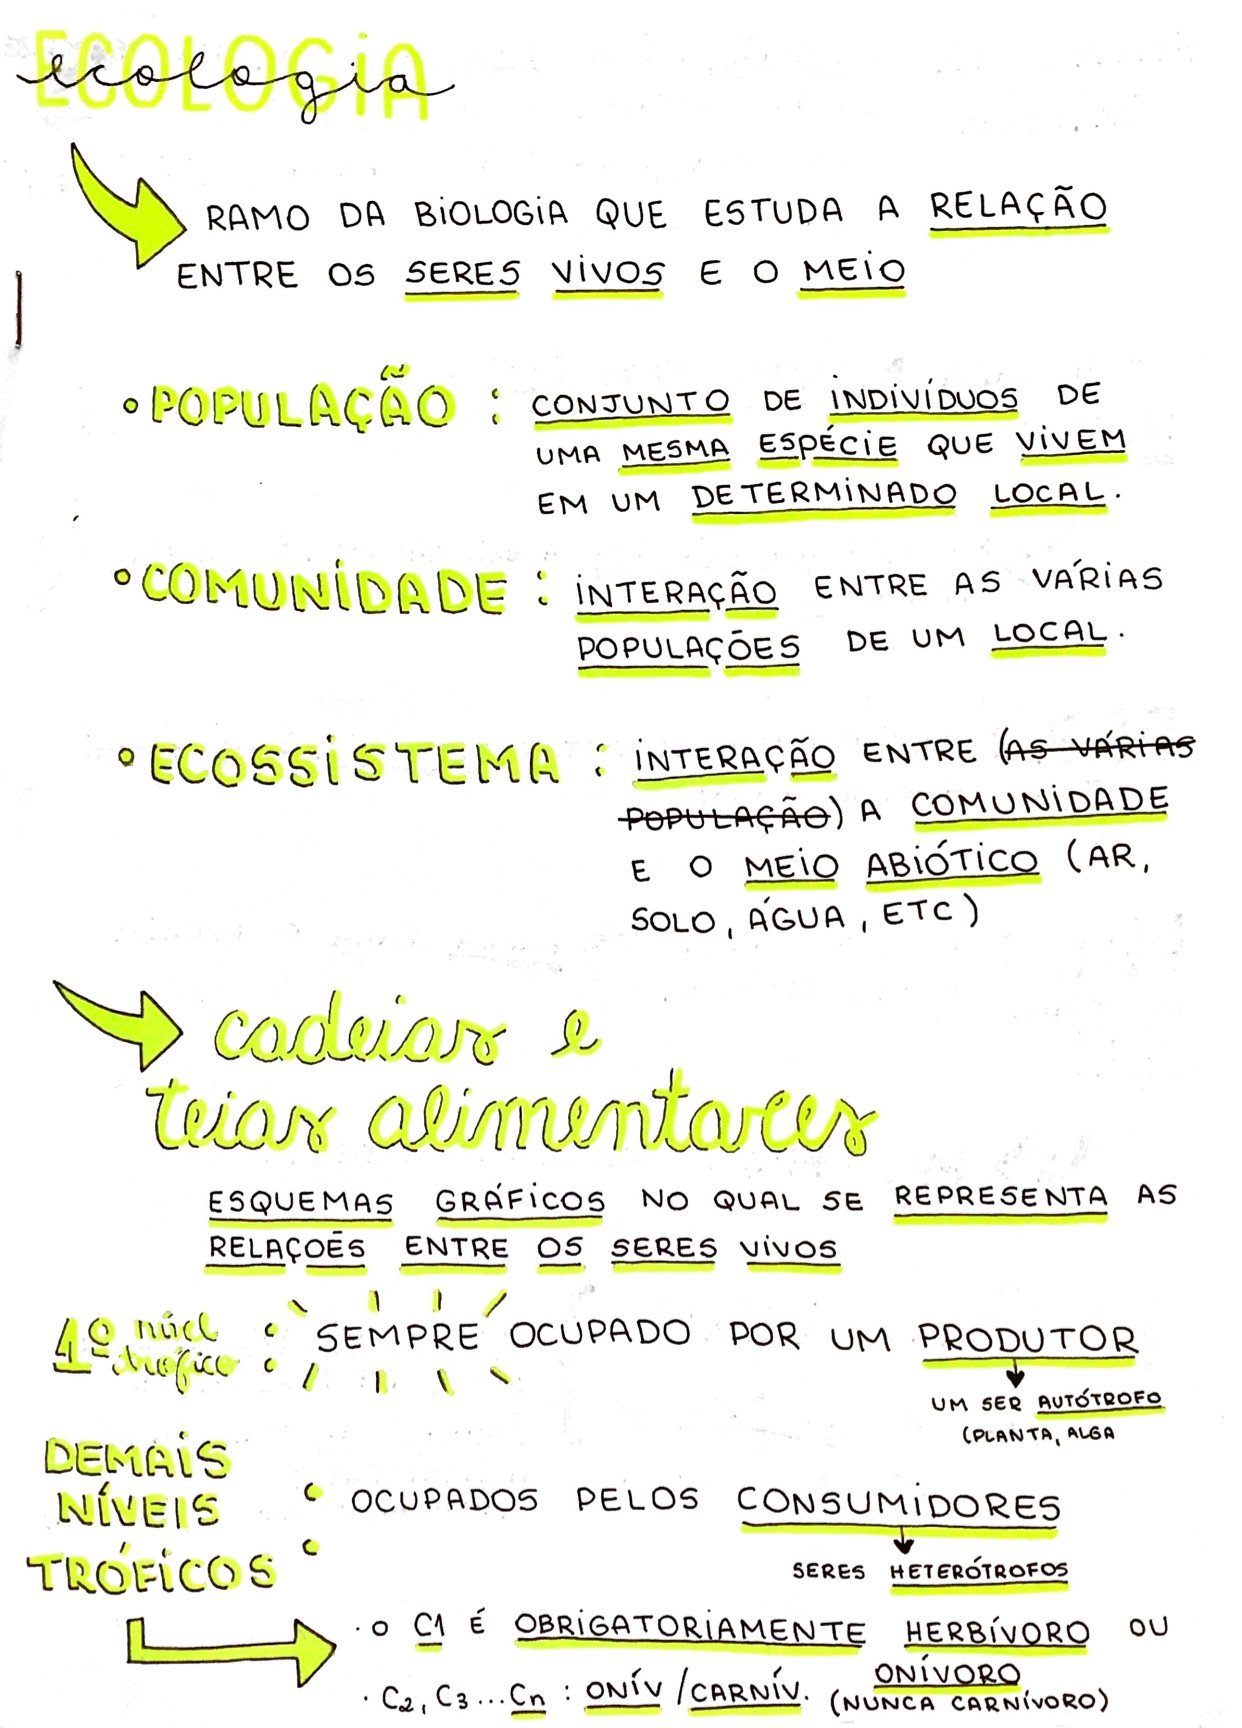 ECOLOGIA
ecologia
RAMO DA BIOLOGIA QUE ESTUDA A RELAÇÃO
ENTRE OS SERES VIVOS E O MEIO
• POPULAÇÃO : CONJUNTO DE INDIVÍDUOS DE
UMA MESMA ESPÉCIE QUE VIVEM
EM UM DETERMINADO LOCAL.
• COMUNIDADE : INTERAÇÃO ENTRE AS VÁRIAS
POPULAÇÕES DE UM LOCAL.
• ECOSSISTEMA : INTERAÇÃO ENTRE (AS VÁRIAS
POPULAÇÃO) A COMUNIDADE
E O MEIO ABIÓTICO (AR,
SOLO, ÁGUA, ETC)
cadeias e
teias alimentares
ESQUEMAS GRÁFICOS NO QUAL SE REPRESENTA AS
RELAÇOẼS ENTRE OS SERES VIVOS
1º núcl trófico : SEMPRE OCUPADO POR UM PRODUTOR
UM SER AUTÓTROFO
(PLANTA, ALGA
DEMAIS
NÍVEIS
TRÓFICOS : OCUPADOS PELOS CONSUMIDORES
SERES HETERÓTROFOS
· O C1 É OBRIGATORIAMENTE HERBÍVORO OU
ONÍVORO
· C2, C3 ... Cn : ONÍV / CARNÍV. (NUNCA CARNÍVORO)